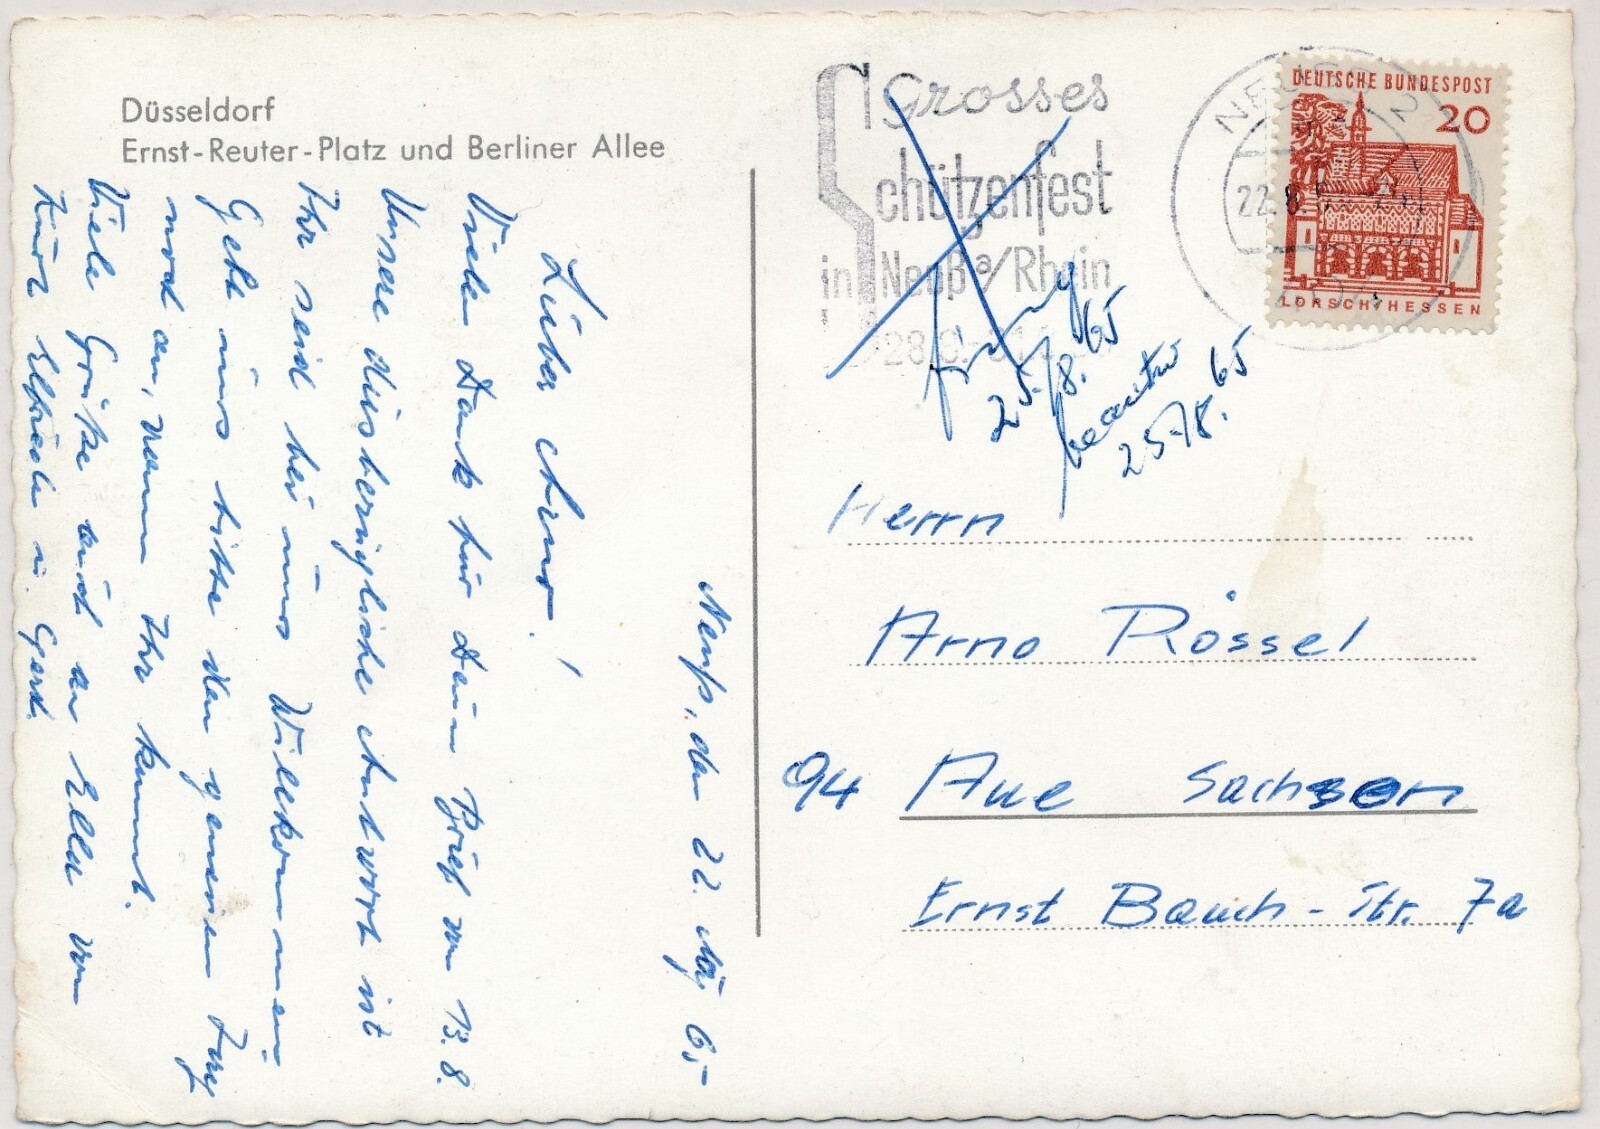 Düsseldorf
Ernst-Reuter-Platz und Berliner Allee
Grosses
Schützenfest
in Neuß a/Rhein
28.8.-31.
NEUSS 2
22.8.
DEUTSCHE BUNDESPOST
20
LORSCH/HESSEN
25./8. 65
25./8. 65
Neuß, den 22. Aug 65
Lieber Arno!
Vielen Dank für Dein Brief vom 13.8.
Unsere diesbezügliche Antwort ist
Ihr seid bei uns Willkommen
Gebt uns bitte den genauen Zug
noch an, wann Ihr kommt.
Viele Grüße auch an Ella von
Kurt Elfriede u. Gerd.
Herrn
Arno Rössel
94 Aue Sachsen
Ernst Bauch-Str. 7a